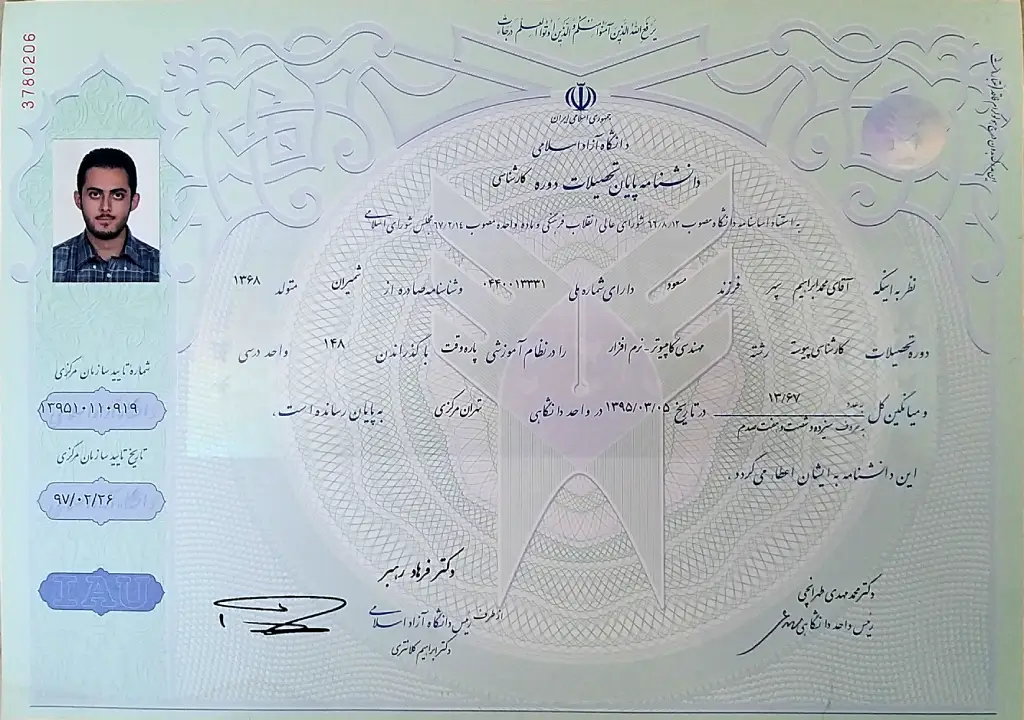 یرفع الله الذین آمنوا منکم والذین اوتوا العلم درجات
جمهوری اسلامی ایران
دانشگاه آزاد اسلامی
دانشنامه پایان تحصیلات دوره کارشناسی
به استناد اساسنامه دانشگاه مصوب ۶۶/۸/۱۲ شورای عالی انقلاب فرهنگی و ماده واحده مصوب ۶۷/۲/۱۴ مجلس شورای اسلامی
نظر به اینکه آقای محمدابراهیم سپهر فرزند مسعود دارای شماره ملی ۰۴۴۰۰۱۳۳۳۱ و شناسنامه صادره از شمیران متولد ۱۳۶۸
دوره تحصیلات کارشناسی پیوسته رشته مهندسی کامپیوتر-نرم افزار را در نظام آموزشی پاره وقت با گذراندن ۱۴۸ واحد درسی
و میانگین کل بعدد ۱۳/۶۷ بحروف سیزده و شصت و هفت صدم در تاریخ ۱۳۹۵/۰۳/۰۵ در واحد دانشگاهی تهران مرکزی به پایان رسانده است.
این دانشنامه به ایشان اعطا می گردد.
دکتر محمد مهدی طهرانچی
رئیس واحد دانشگاهی
دکتر فرهاد رهبر
رئیس دانشگاه آزاد اسلامی
از طرف
دکتر ابراهیم کلانتری
3780206
شماره تایید سازمان مرکزی
۱۳۹۵۱۰۱۱۰۹۱۹
تاریخ تایید سازمان مرکزی
۹۷/۰۲/۲۶
IAU